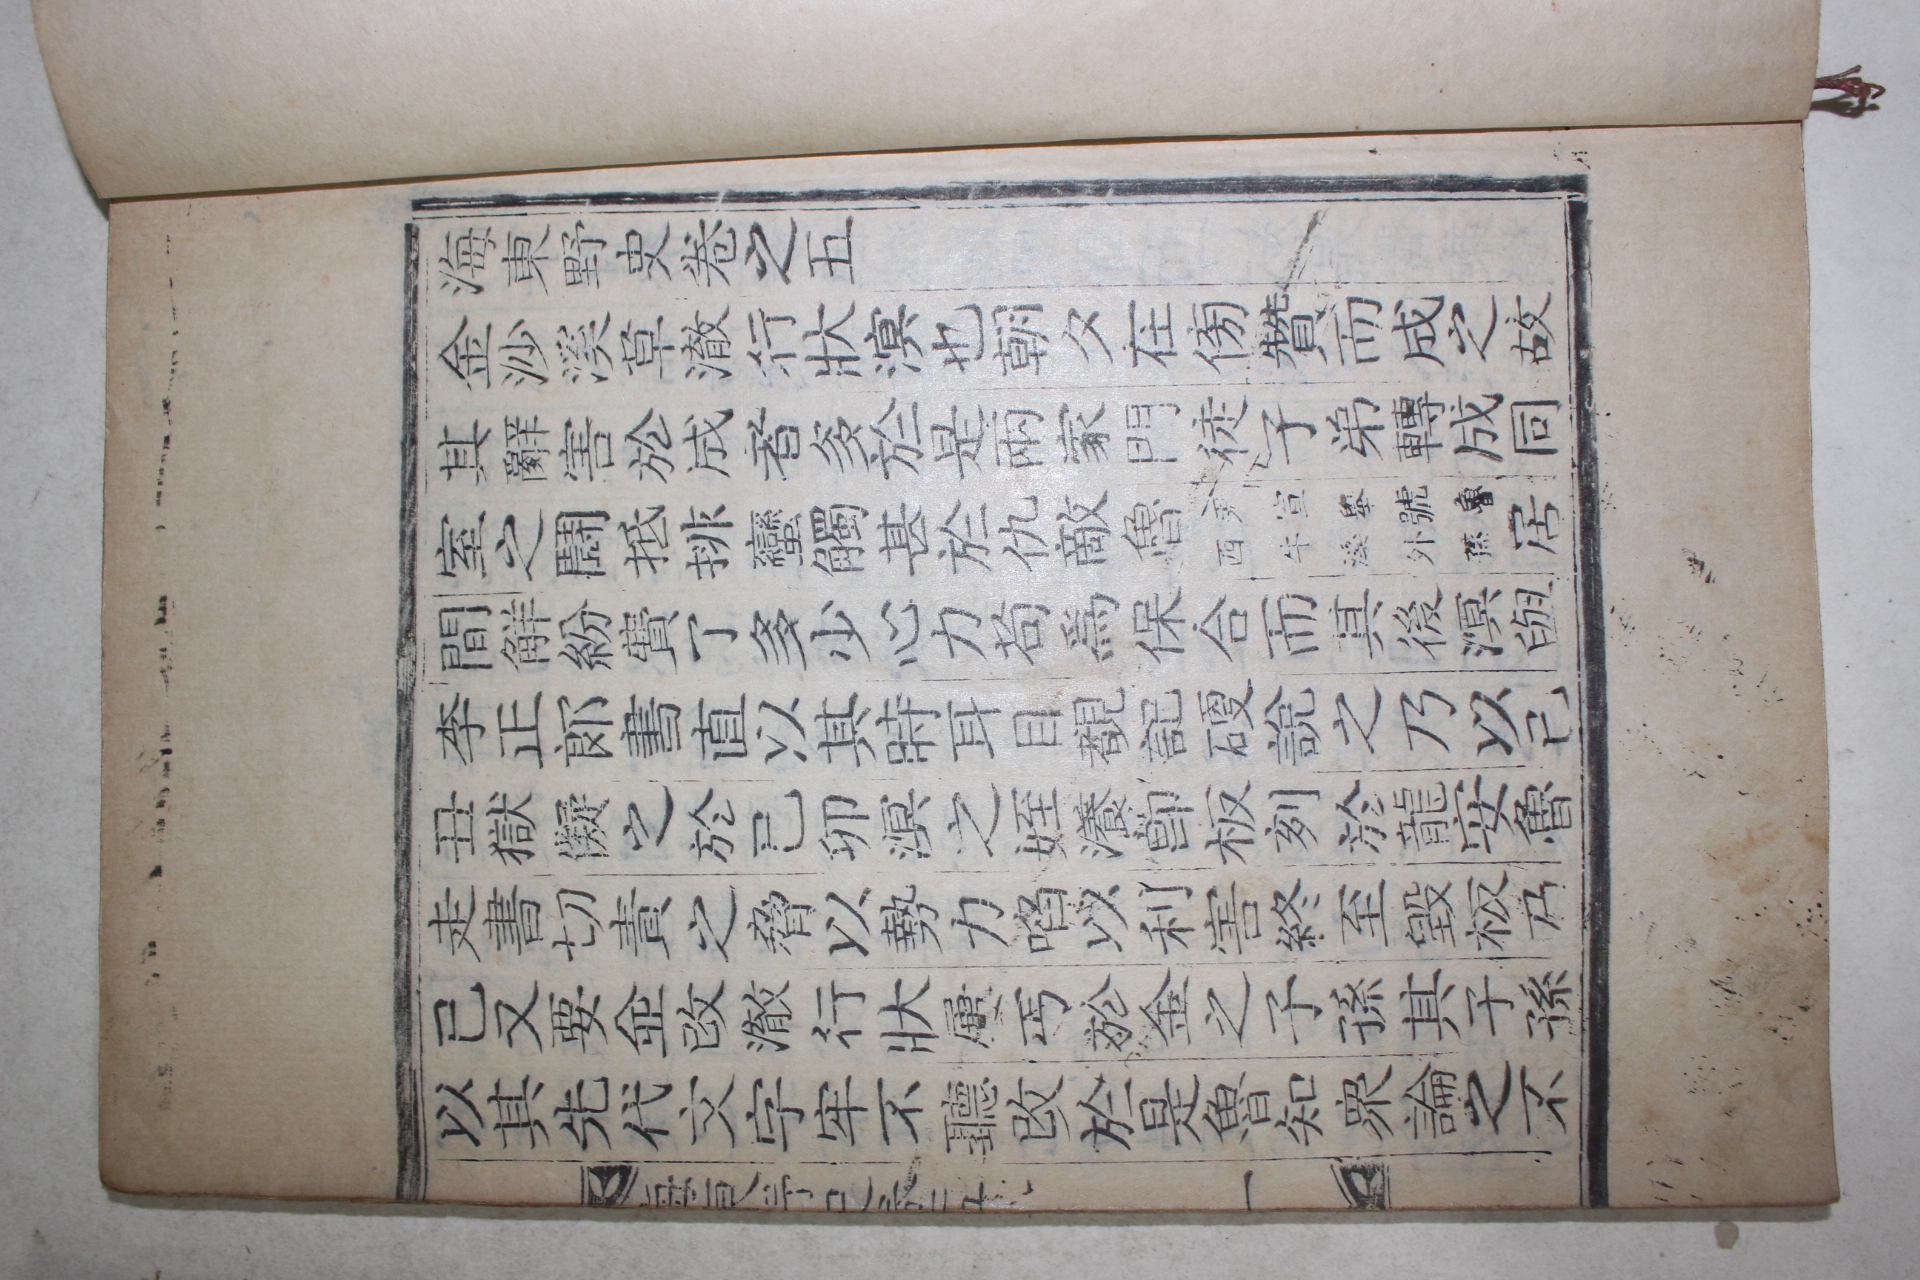 海東野史卷之五
金沙溪草澈行狀溟也朝夕在傍贊而成之故
其辭害於成者多於是兩家門徒子弟轉成同
室之鬪抵排蠻觸甚於仇敵魯尹宣擧號魯西牛溪外孫居
間解紛費了多少心力苟爲保合而其後溟與
李正郎書直以其時耳目覩記硬說之乃以己
丑獄擬之於己卯溟之姪瀁卽板刻於龍安魯
走書切責之脅以勢力啗以利害終至毁板乃
已又要金改澈行狀屢丐於金之子孫其子孫
以其先代文字牢不聽改於是魯知衆論之不
一